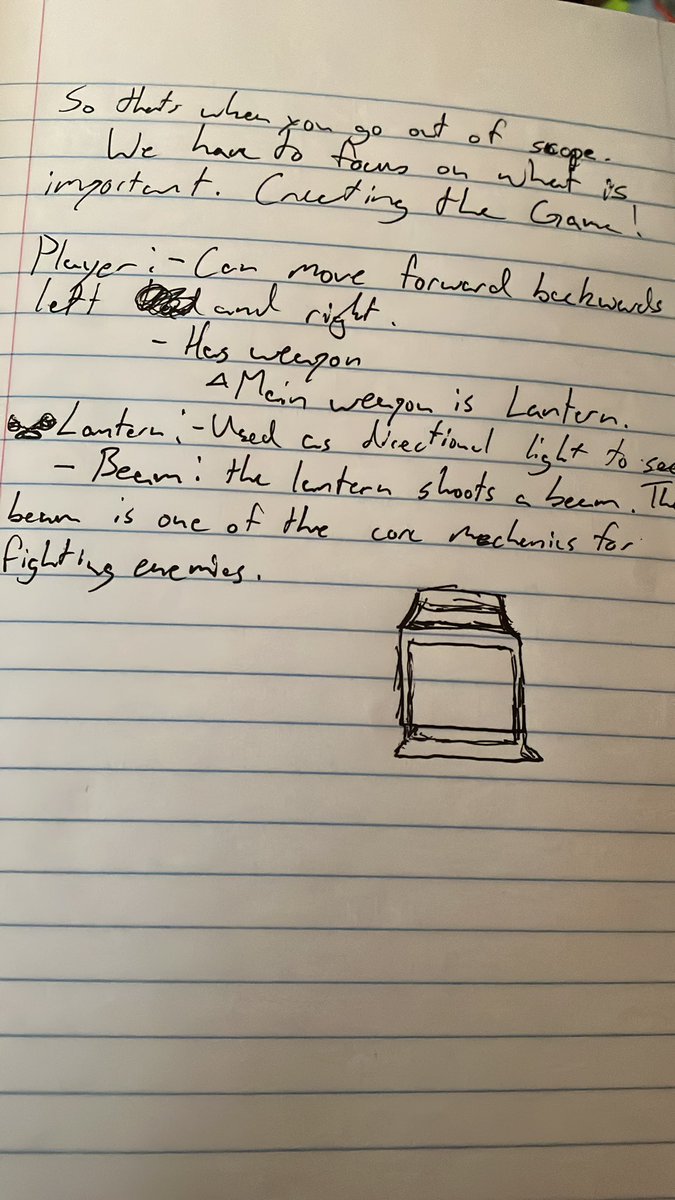 So thats when you go out of scope.
We have to focus on what is
important. Creating the Game!
Player: - Can move forward backwards
left and right.
- Has weapon
△ Main weapon is Lantern.
Lantern: - Used as directional light to see
- Beam: the lantern shoots a beam. The
beam is one of the core mechanics for
fighting enemies.